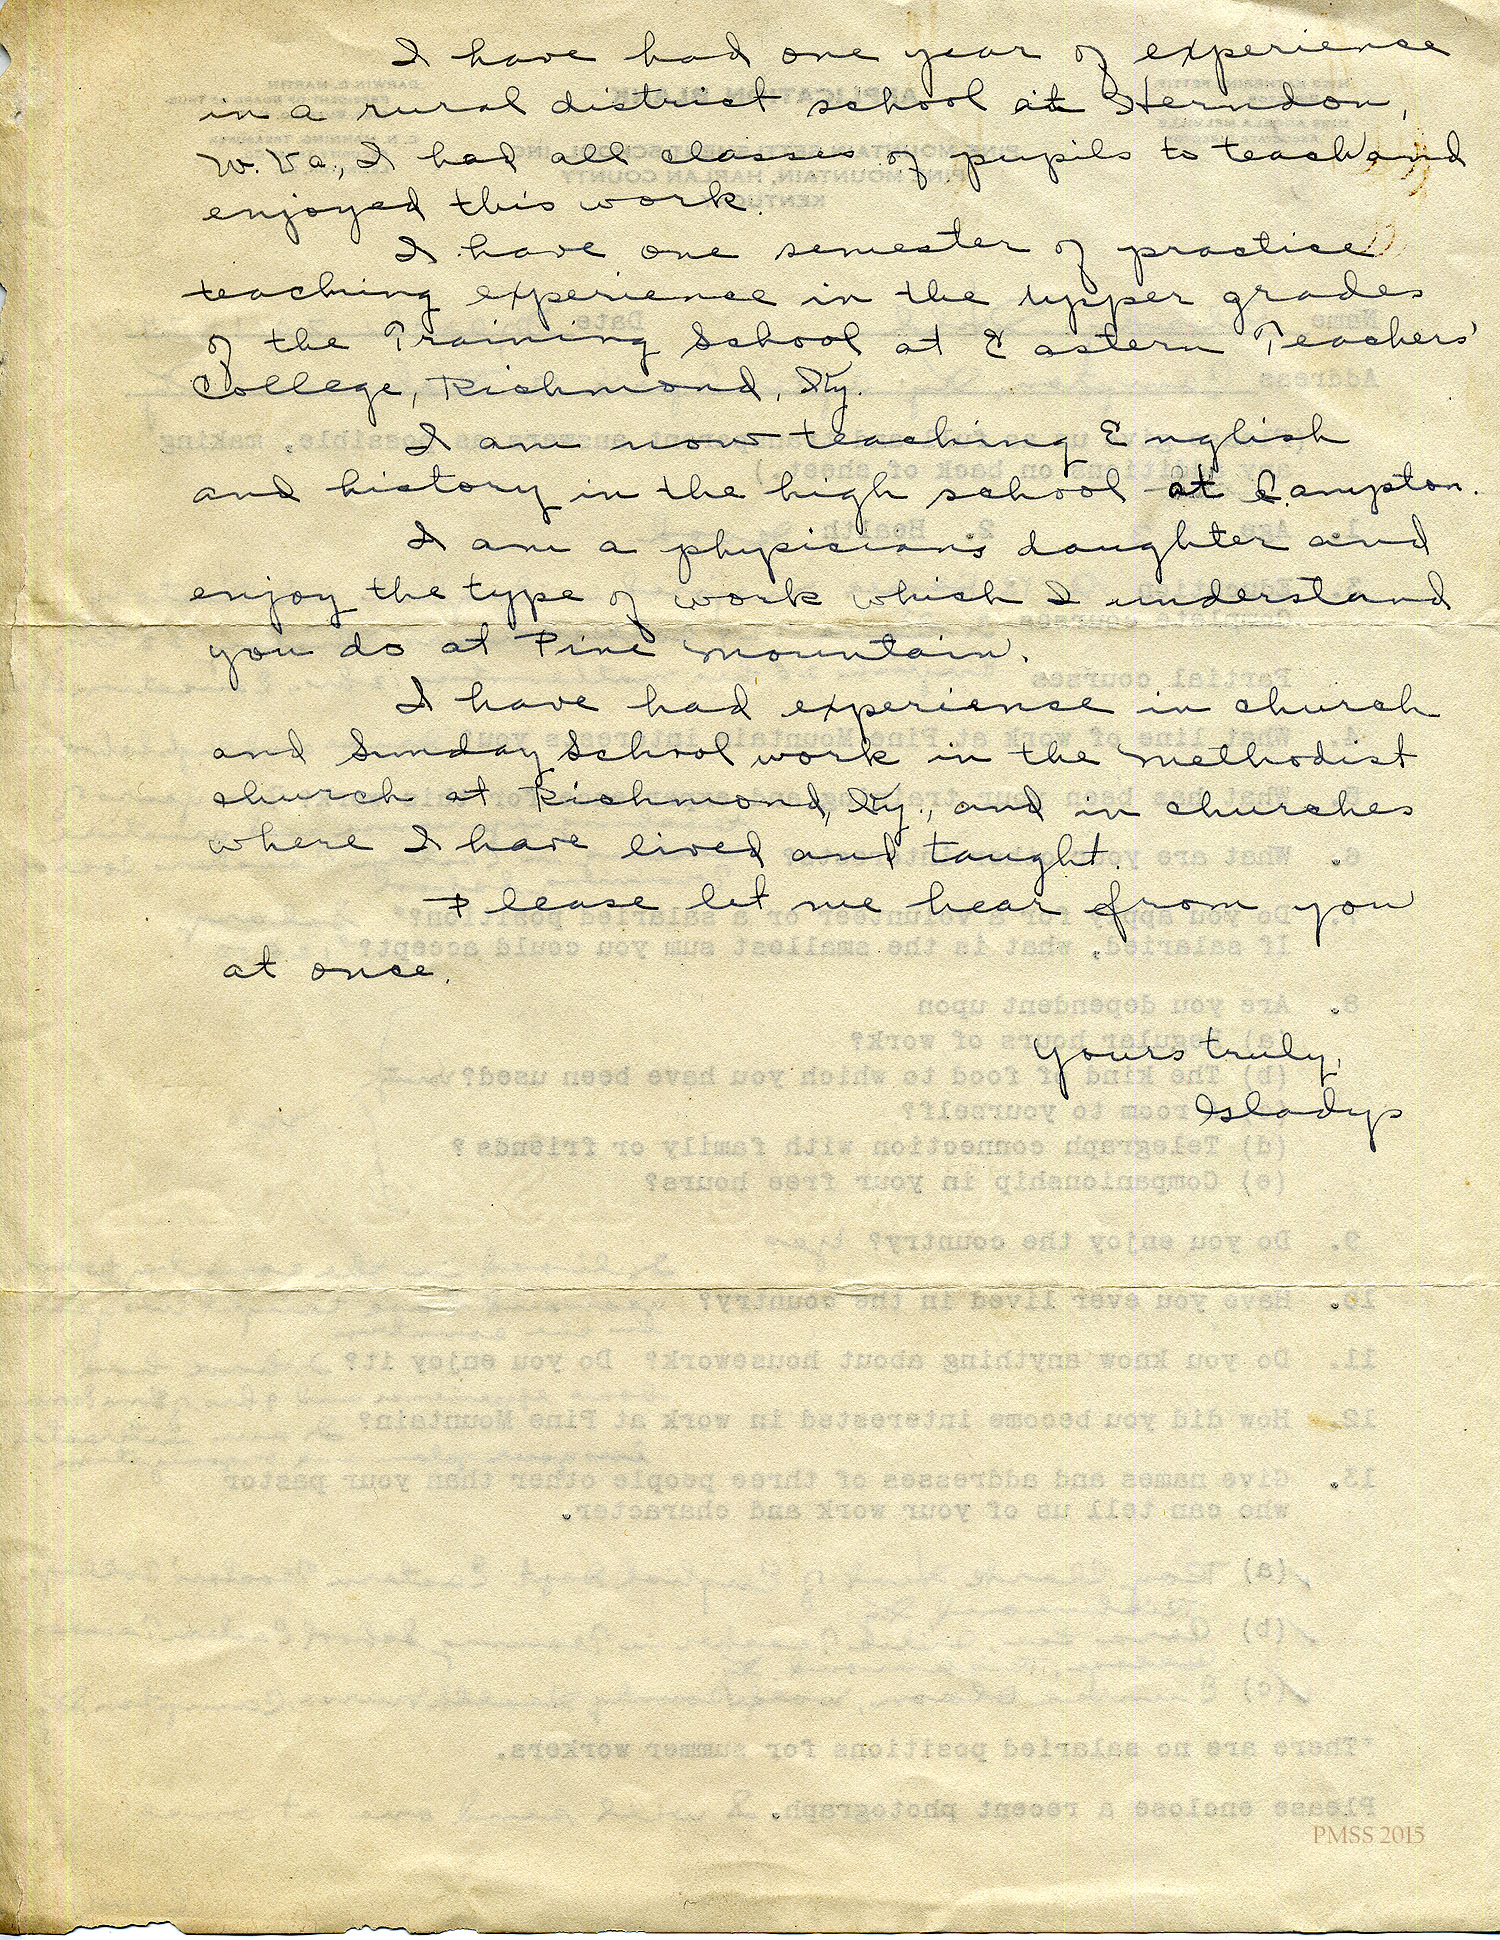 I have had one year of experience
in a rural district school at Herndon,
W. Va., I had all classes of pupils to teach and
enjoyed this work.
I have one semester of practice
teaching experience in the upper grades
of the Training School at Eastern Teachers'
College, Richmond, Ky.
I am now teaching English
and history in the high school at Campton.
I am a physicians daughter and
enjoy the type of work which I understand
you do at Pine Mountain.
I have had experience in church
and Sunday School work in the Methodist
church at Richmond, Ky., and in churches
where I have lived and taught.
Please let me hear from you
at once.
Yours truly,
Gladys
PMSS 2015